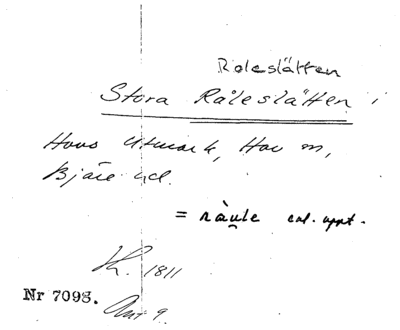 Roleslätten
Stora Råleslätten
Hovs Utmark, Hov sn,
Bjäre hd.
= ràu̬le enl. uppt.
1811
Nr 7098.